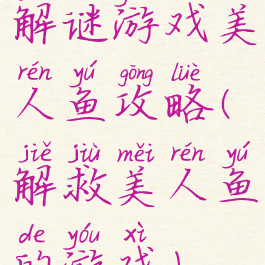 解谜游戏美
rén yú gōng lüè
人鱼攻略(
jiě jiù měi rén yú
解救美人鱼
de yóu xì
的游戏)